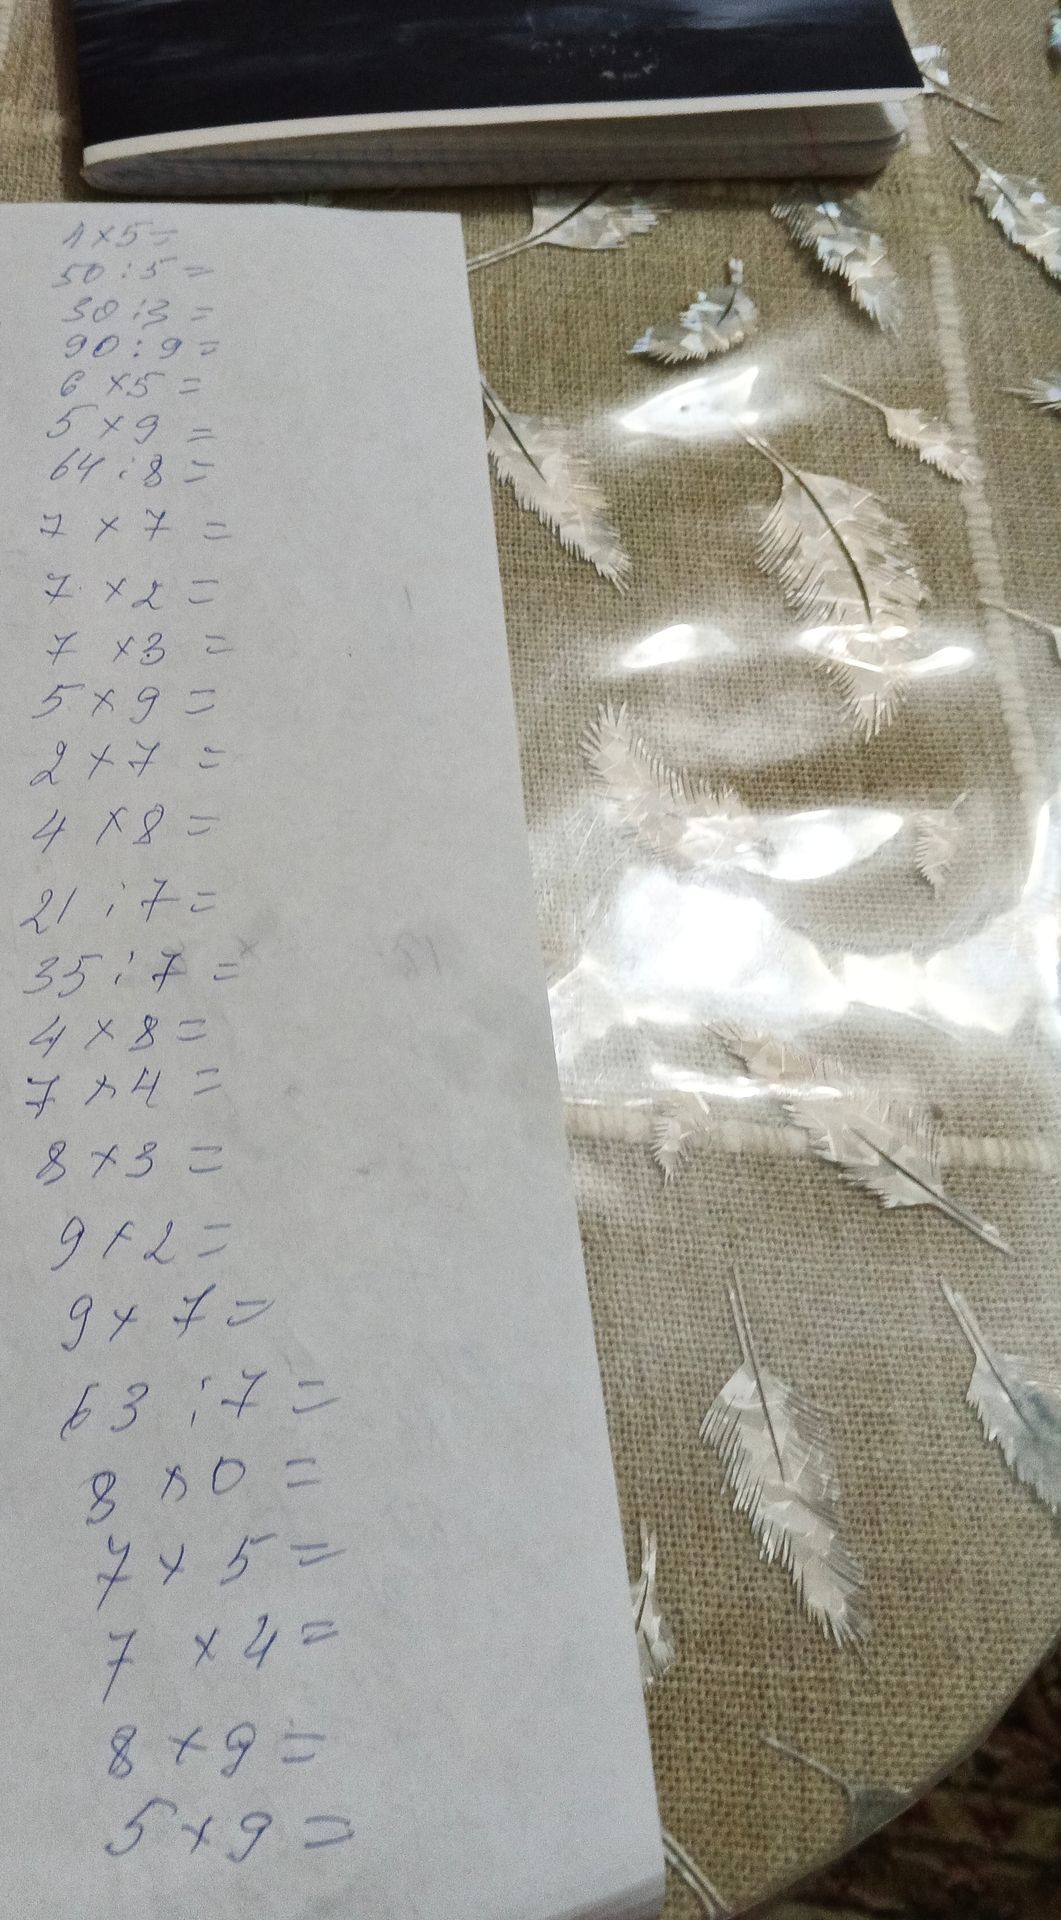 4×5=
50:5=
30:3=
90:9=
6×5=
5×9=
64:8=
7×7=
7×2=
7×3=
5×9=
2×7=
4×8=
21:7=
35:7=
4×8=
7×4=
8×3=
9×2=
9×7=
63:7=
8×0=
7×5=
7×4=
8×9=
5×9=